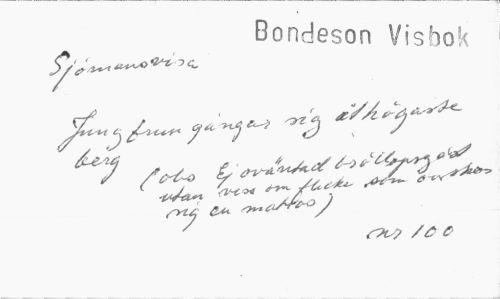 Bondeson Visbok
Sjömansvisa
Jungfrun gångar sig åt högaste
berg
(obs Ej oväntad bröllopsgäst
utan visa om flicka som önskar
sig en matros)
nr 100